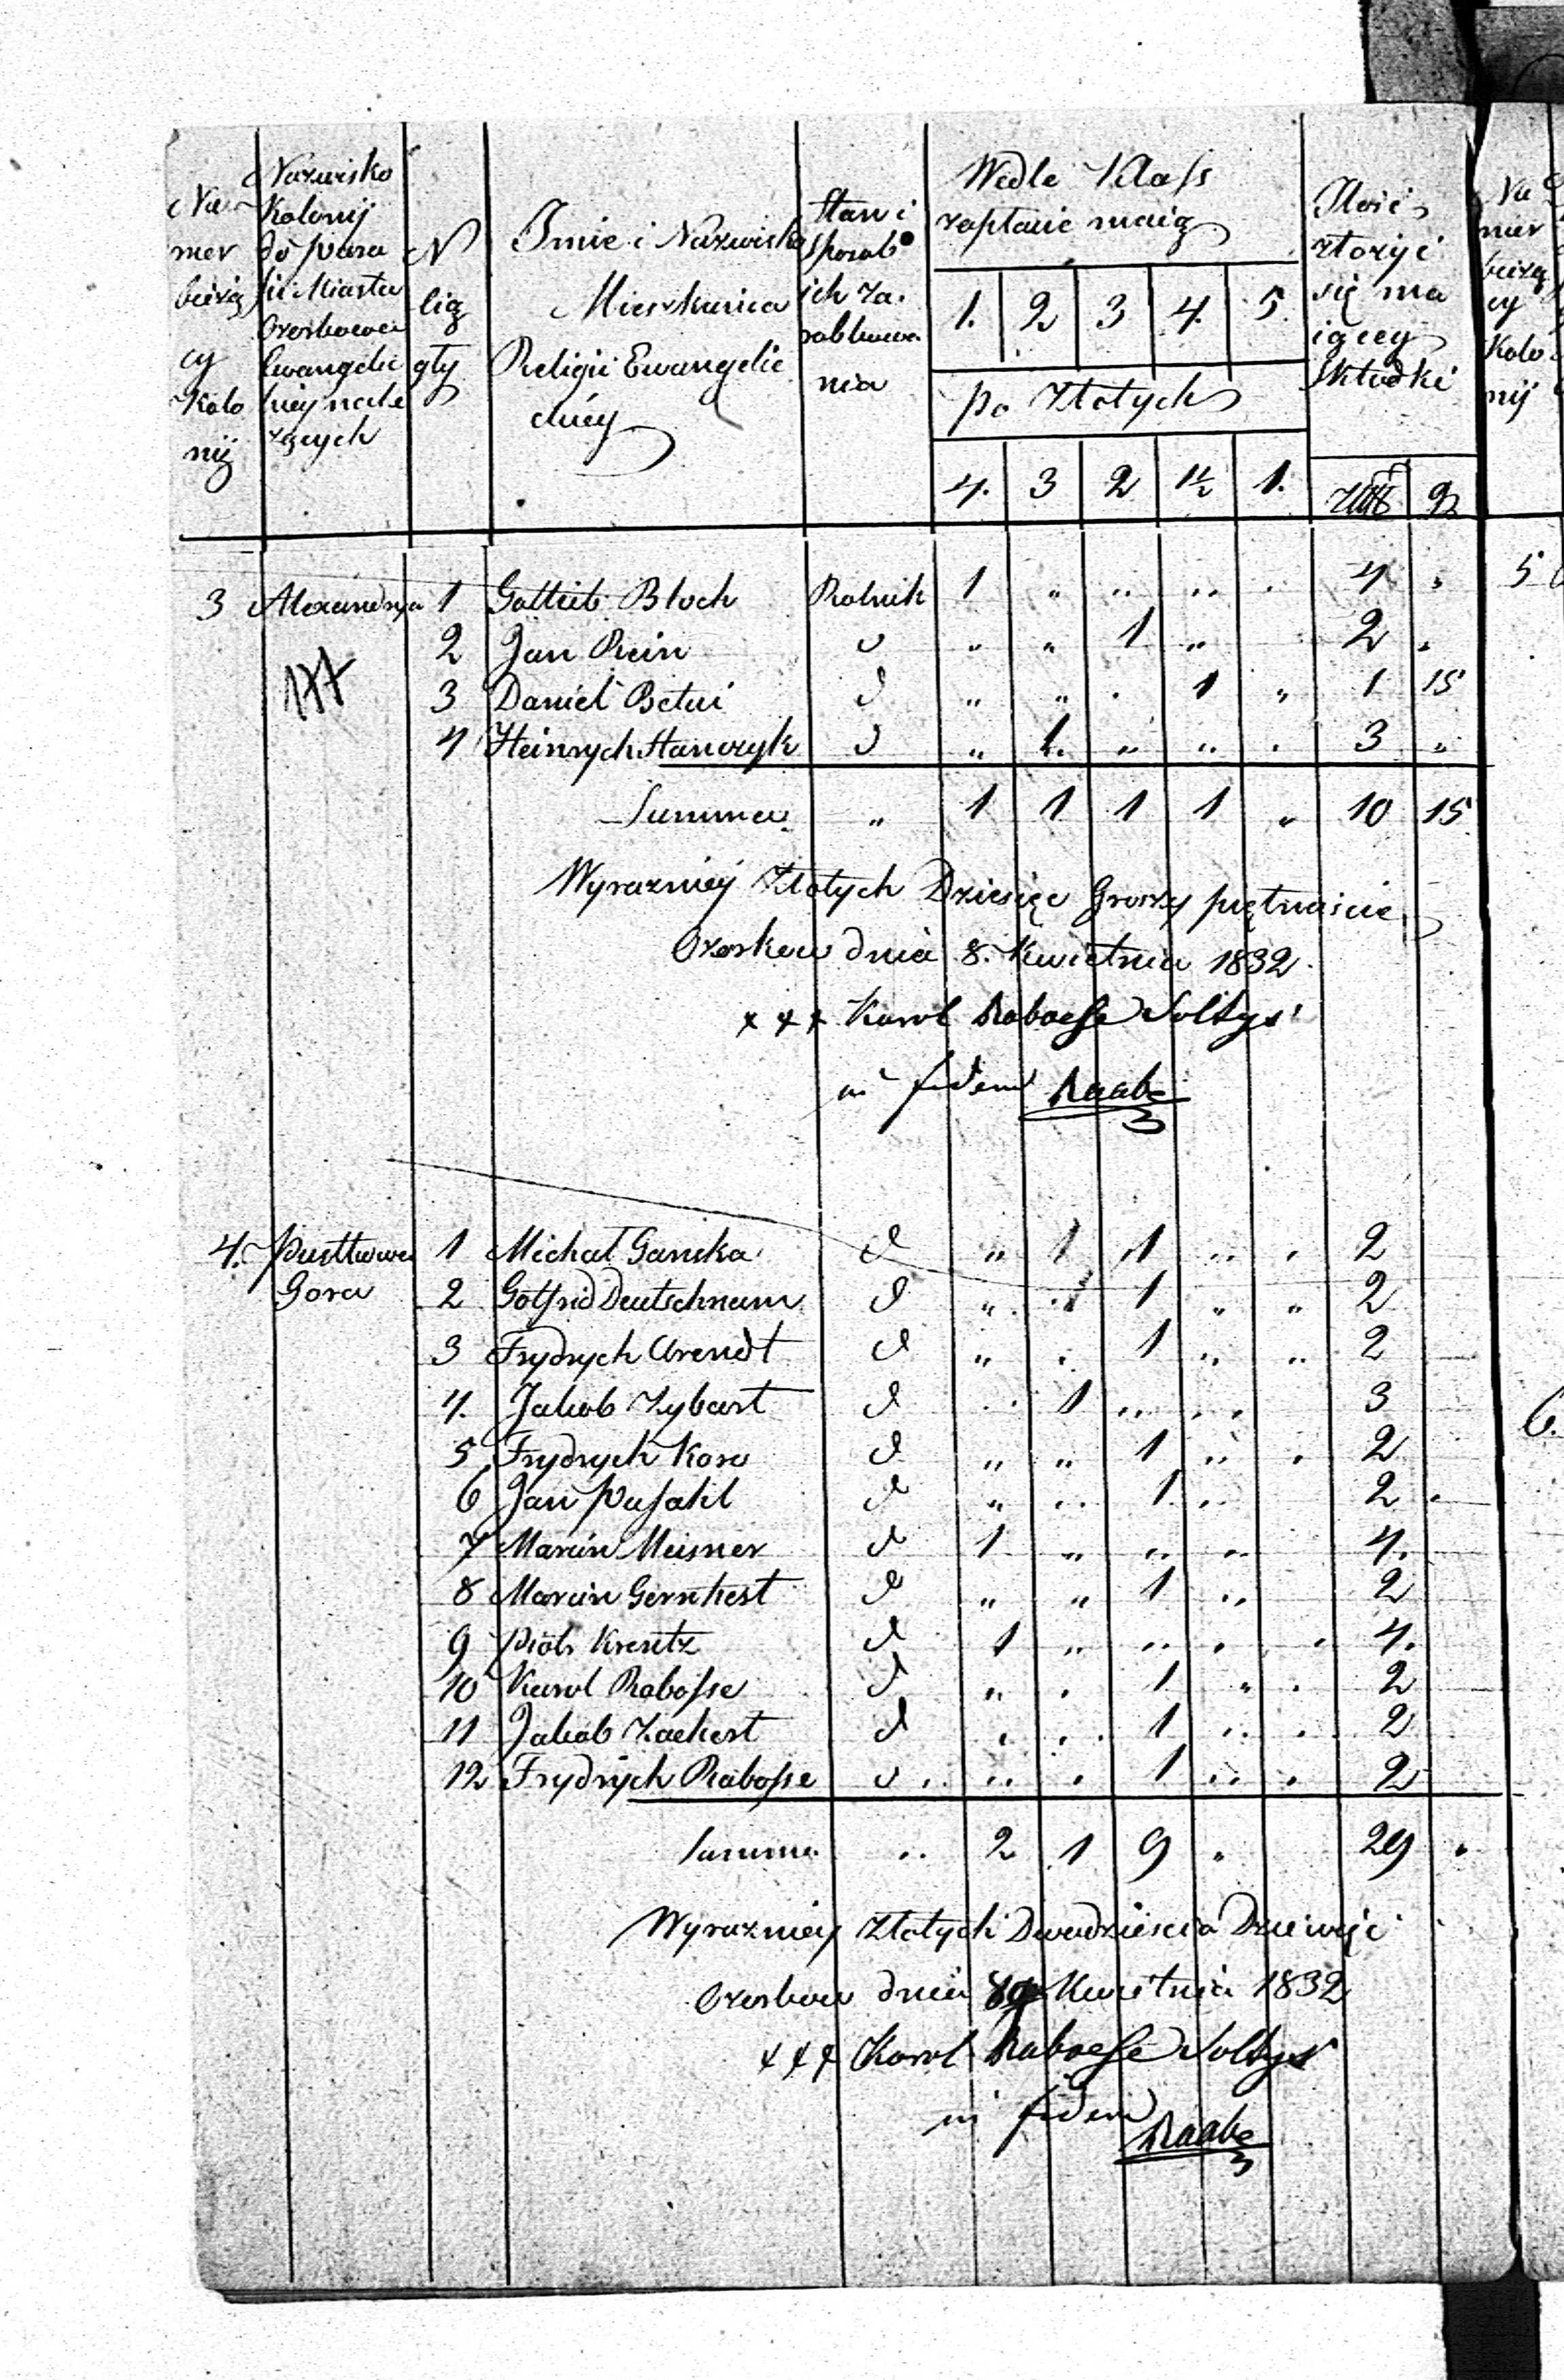 Nu
mer
bieżą
cy
Kolo
nij
Nazwisko
Kolonij
do para
fii Miasta
Ozorkowa
Ewangelic
kiey nale
rzących
N
lig
gty
Imie i Nazwisko
Mieszkanica
Religii Ewangelic
kiey
Stan i
Sposob
ich za.
robkowa.
nia
Wedle Klass
zaptacic maią
1. 2 3 4. 5.
po Złotych
4. 3 2 1½ 1.
Ilosc
się ma
iącey
Składki
Złt gr
3 Alexandrya 1 Gottlieb Bloch Rolnik 1 " " " . 4 "
2 Jan Rein d " " 1 " 2 "
3 Daniel Betui d " " . 1 " 1 15
4 Heinrych Stanczyk d " 1. " " . 3 "
Summa " 1 1 1 1 " 10 15
Wyrazniey Złotych Dziesięc Groszy piętnascie
Ozorkow dnia 8. Kwietnia 1832
xxx Karol Raboesse Soltys
in fidem Raabe
4. Pustkowa 1 Michał Ganska d " 1 1 " . 2
Gora 2 Gotfrid Deutschnam d " 1 1 " " 2
3 Frydrych Arendt d " . 1 " " 2
4. Jakob Zybart d " 1 " " 3
5 Frydrych Koso d " " 1 " . 2
6 Jan d " " 1 " 2 .
7 Marcin Meisner d 1 " " " 4.
8 Marcin Gernhest d " " 1 " 2
9 Piotr Krentz d 1 " " . . 4.
10 Karol Rabosse d " . 1 " . 2
11 Jakob Zachert d . . 1 " . 2
12 Frydrych Rabosse d " . 1 " . 2
Summa " 2 1 9 " 29 .
Wyrazniey Złotych Dwadziescia Dziewięc
Ozorkow dnia 8 Kwietnia 1832
xxx Karol Raboesse Soltys
in fidem Raabe
Nu
mer
bieżą
cy
Kolo
nij
5
6.